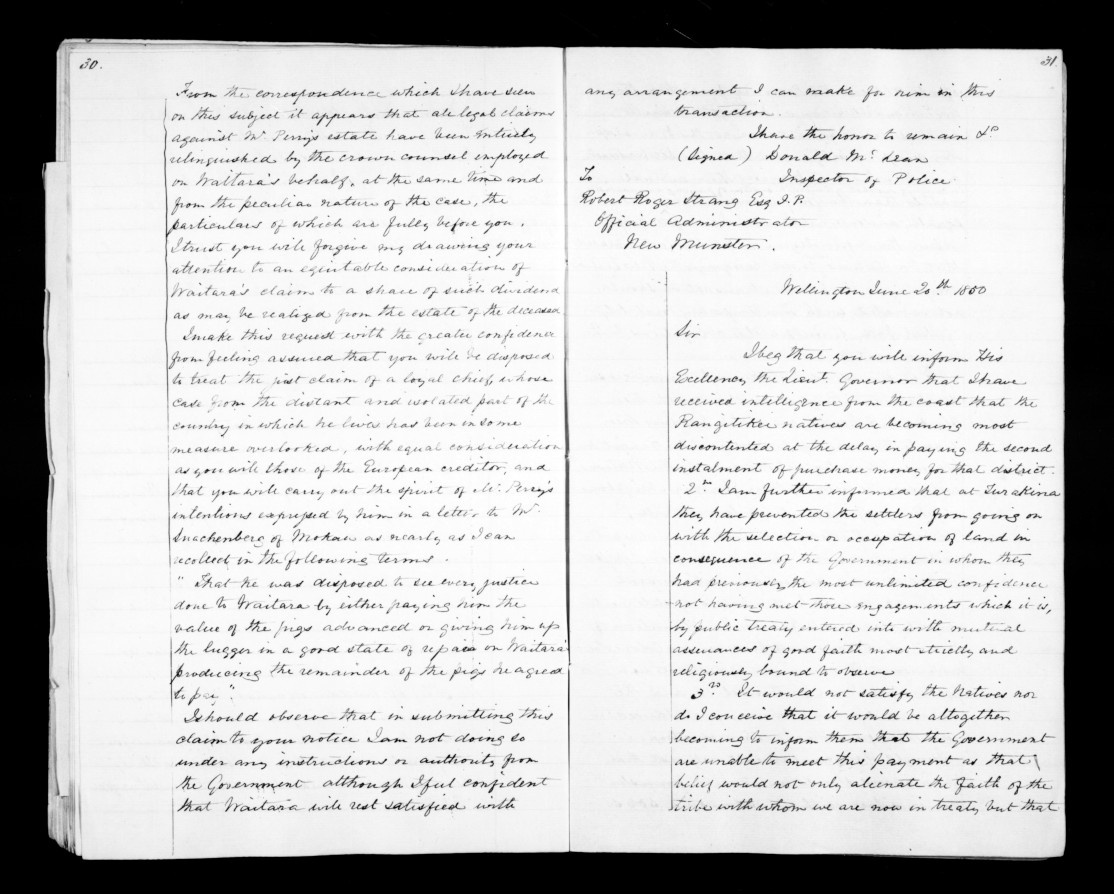 30.
From the correspondence which I have seen
on this subject it appears that all legal claims
against Mr Perry's estate have been entirely
relinquished by the crown counsel employed
on Waitara's behalf, at the same time and
from the peculiar nature of the case, the
particulars of which are fully before you,
I trust you will forgive my drawing your
attention to an equitable consideration of
Waitara's claim to a share of such dividend
as may be realized from the estate of the deceased
I make this request with the greater confidence
from feeling assured that you will be disposed
to treat the just claim of a loyal chief, whose
case from the distant and isolated part of the
country in which he lives has been in some
measure overlooked, with equal consideration
as you will those of the European creditor, and
that you will carry out the spirit of Mr Perry's
intentions expressed by him in a letter to Mr
Snachenberg of Mokau as nearly as I can
recollect, in the following terms.
" That he was disposed to see every justice
done to Waitara by either paying him the
value of the pigs advanced or giving him up
the lugger in a good state of repair on Waitara
producing the remainder of the pigs he agreed
to pay."
I should observe that in submitting this
claim to your notice I am not doing so
under any instructions or authority from
the Government although I feel confident
that Waitara will rest satisfied with
31.
any arrangement I can make for him in this
transaction.
I have the honor to remain &c
(Signed) Donald Mc Lean
To Inspector of Police
Robert Roger Strang Esq J.P.
Official Administrator
New Munster.
Wellington June 20th 1850
Sir
I beg that you will inform His
Excellency the Lieut. Governor that I have
received intelligence from the coast that the
Rangitikei natives are becoming most
discontented at the delay in paying the second
instalment of purchase money for that district.
2nd I am further informed that at Turakina
they have prevented the settlers from going on
with the selection or occupation of land in
consequence of the Government in whom they
had previously the most unlimited confidence
not having met those engagements which it is,
by public treaty entered into with mutual
assurances of good faith most strictly and
religiously bound to observe
3rd It would not satisfy the Natives nor
do I conceive that it would be altogether
becoming to inform them that the Government
are unable to meet this payment as that
belief would not only alienate the faith of the
tribe with whom we are now in treaty but that